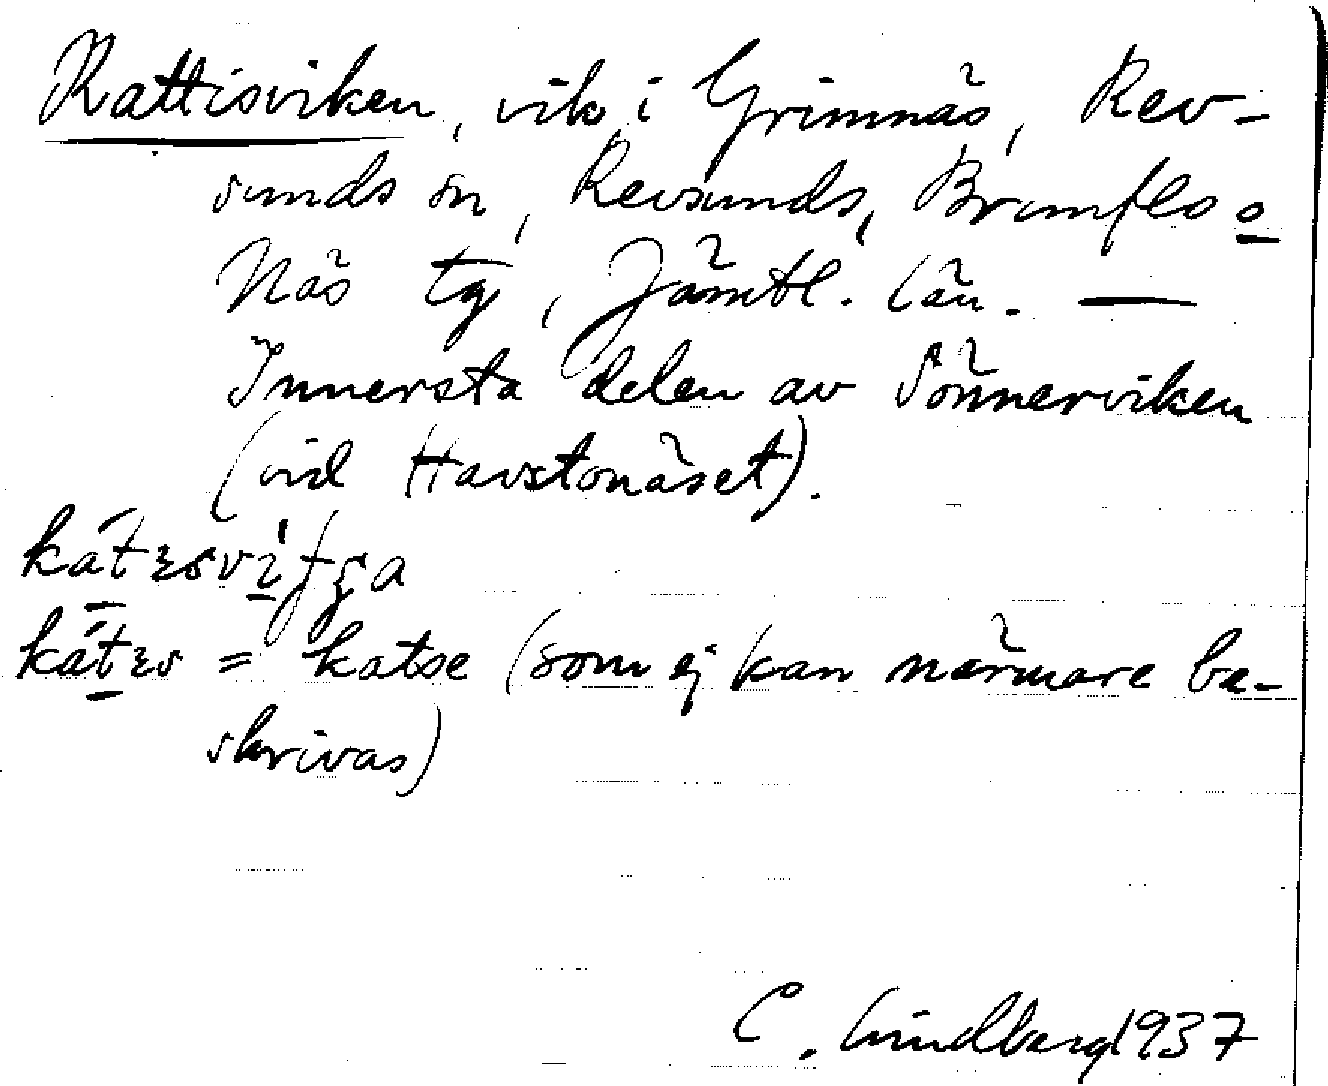 Kattisviken, vik i Grimnäs, Rev-
sunds sn, Revsunds, Brunflo o
Näs tg, Jämtl. län. —
Innersta delen av Sönnerviken
(vid Havstonäset).
kátɩsvìʃʒa
kátɩs = katse (som ej kan närmare be-
skrivas)
C. Lindberg 1937